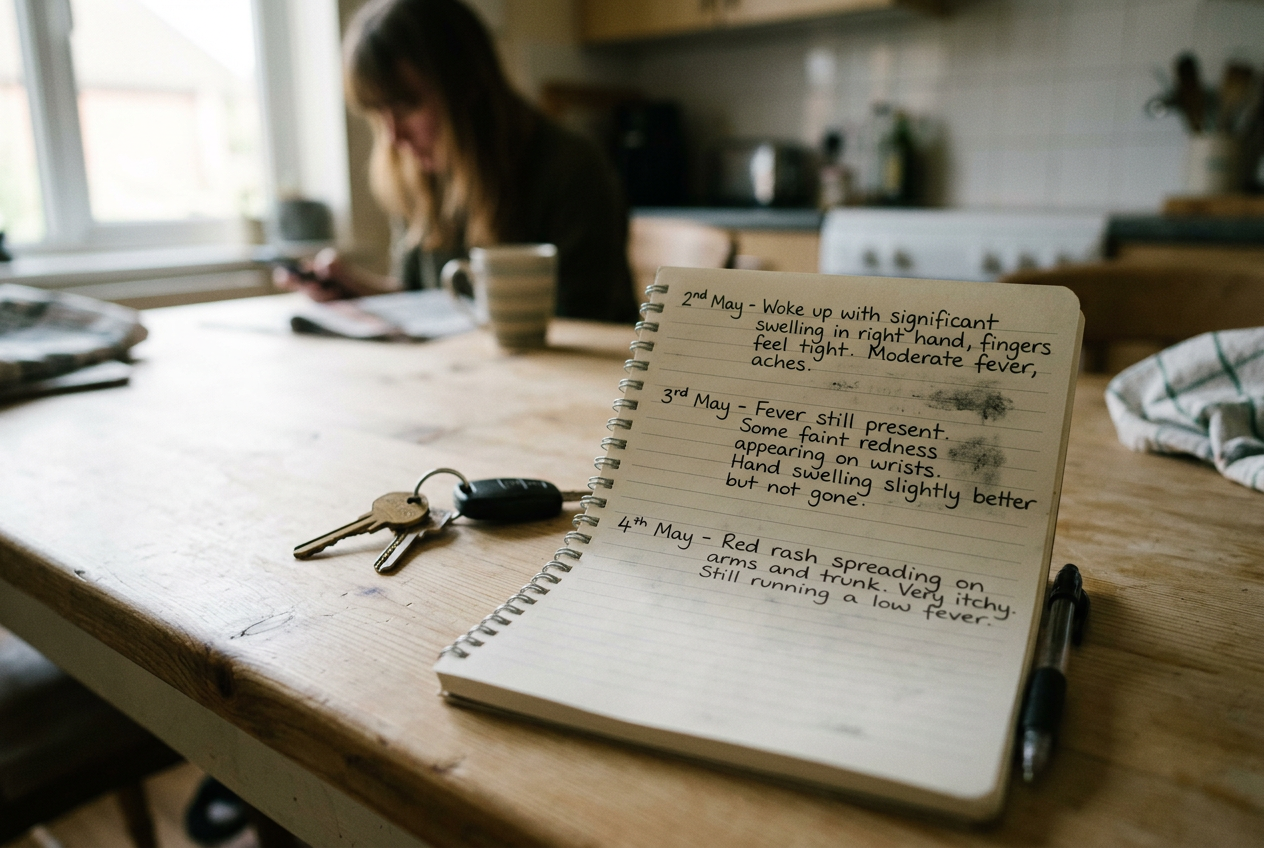 2nd May - Woke up with significant
swelling in right hand, fingers
feel tight. Moderate fever,
aches.
3rd May - Fever still present.
Some faint redness
appearing on wrists.
Hand swelling slightly better
but not gone.
4th May - Red rash spreading on
arms and trunk. Very itchy.
Still running a low fever.